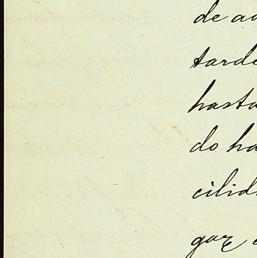 de a
tarde
hasta
do ha
cilid
gaz